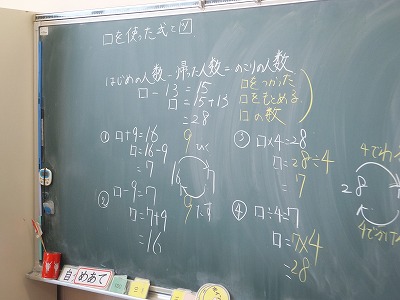 □を使った式と図
はじめの人数－帰った人数＝のこりの人数
□－13＝15
□＝15＋13
＝28
□をつかった
□をもとめる
□の数
① □＋9＝16
□＝16－9
＝7
② □－9＝7
□＝7＋9
＝16
9
ひく
16 7
9
たす
③ □×4＝28
□＝28÷4
＝7
④ □÷4＝7
□＝7×4
＝28
4でわる
28
4でかける
自
めあて